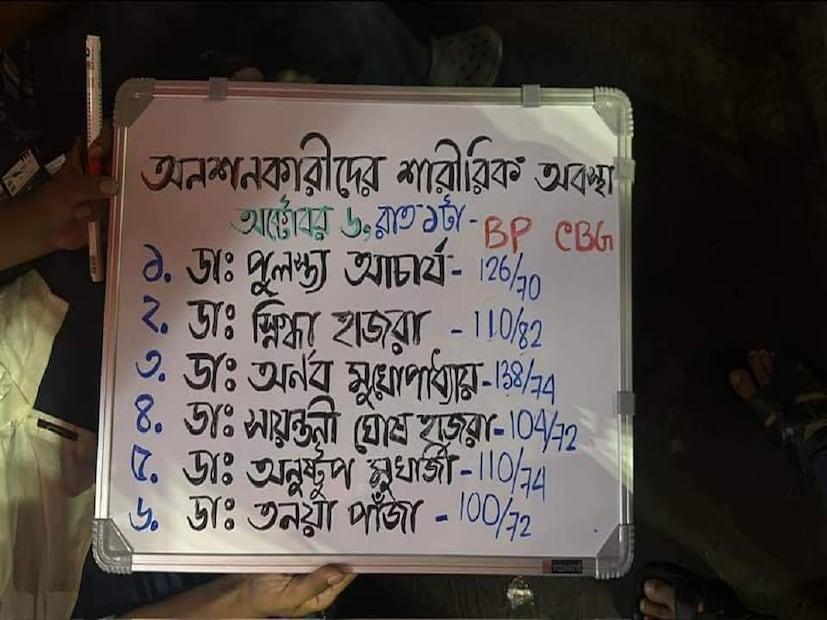 অনশনকারীদের শারীরিক অবস্থা
অক্টোবর ৬, রাত ১টা - BP CBG
১. ডাঃ পুলস্ত্য আচার্য - 126/70
২. ডাঃ স্নিগ্ধা হাজরা - 110/82
৩. ডাঃ অর্নব মুখোপাধ্যায় - 138/74
৪. ডাঃ সায়ন্তনী ঘোষ হাজরা - 104/72
৫. ডাঃ অনুষ্টুপ মুখার্জী - 110/74
৬. ডাঃ তনয়া পাঁজা - 100/72